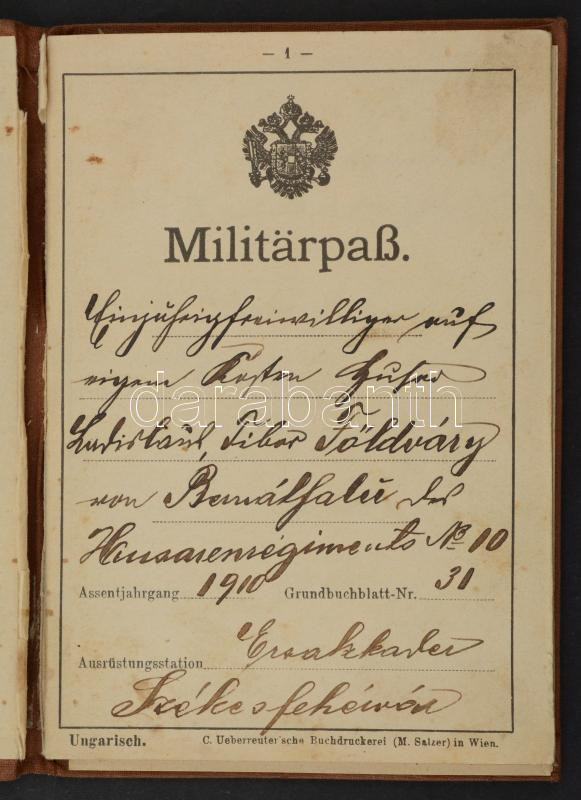 — 1 —
Militärpaß.
Einjährigfreiwilliger auf
eigene Kosten Husar
Ladislaus, Tibor Földváry
von Bernátfalu des
Husarenregiments № 10
Assentjahrgang 1910 Grundbuchblatt-Nr. 31
Ausrüstungsstation Ersatzkader
Székesfehérvár
Ungarisch. C. Ueberreuter'sche Buchdruckerei (M. Salzer) in Wien.
darabanth